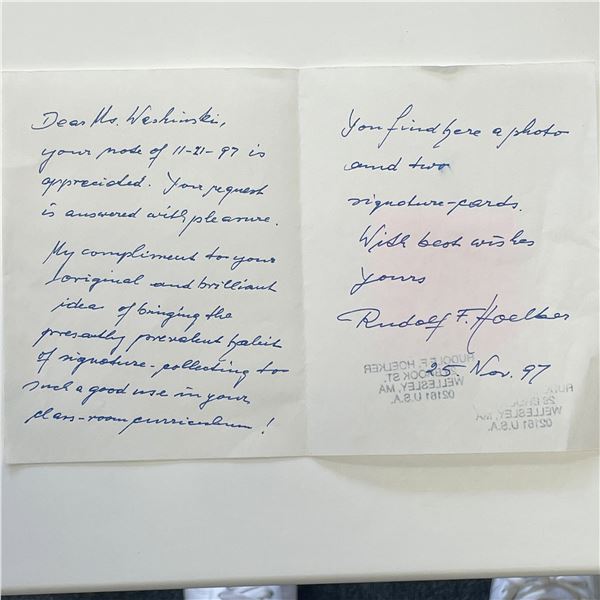 Dear Ms. Weshinski,
your note of 11-21-97 is
appreciated. Your request
is answered with pleasure.
My compliment to your
original and brilliant
idea of bringing the
presently prevalent habit
of signature-collecting to
such a good use in your
class-room curriculum!
You find here a photo
and two
signature-cards.
With best wishes
yours
Rudolf F. Hoelker
25 Nov. 97
RUDOLF F. HOELKER
BROOK ST.
WELLESLEY, MA
02161 U.S.A.
WELLESLEY, MA
02161 U.S.A.